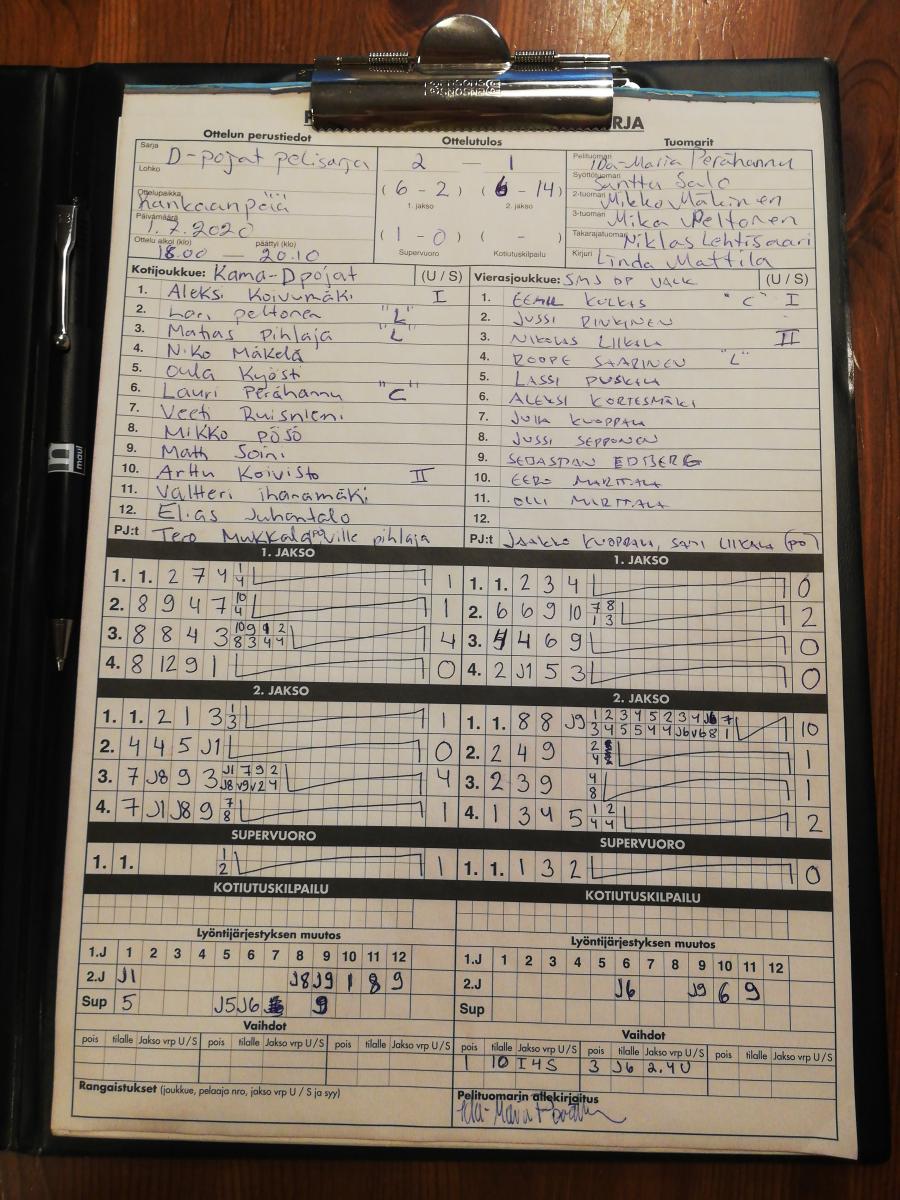 RJA
Ottelun perustiedot
Ottelutulos
Tuomarit
Sarja D-pojat pelisarja
2 — 1
Pelituomari Ida-Maria Perähannu
Lohko
Syöttötuomari Santtu Salo
(6 - 2) (6 - 14)
1. jakso 2. jakso
Ottelupaikka Kankaanpää
2-tuomari Mikko Mäkinen
Päivämäärä 1.7.2020
3-tuomari Mika Peltonen
(1 - 0) ( - )
Supervuoro Kotiutuskilpailu
Ottelu alkoi (klo) päättyi (klo)
18.00 — 20.10
Takarajatuomari Niklas Lehtisaari
Kirjuri Linda Mattila
Kotijoukkue: Kama-Dpojat (U / S)
1. Aleksi Koivumäki I
2. Lari peltonen "L"
3. Matias pihlaja "L"
4. Niko Mäkelä
5. Oula Kyösti
6. Lauri Perähannu "C"
7. Veeti Ruisniemi
8. Mikko pösö
9. Matti Soini
10. Arttu Koivisto II
11. Valtteri ihanamäki
12. Elias Juhantalo
PJ:t Tero Mukkala ville pihlaja
Vierasjoukkue: SMJ DP VALK (U / S)
1. KULKAS "C" I
2. JUSSI RINKINEN
3. NIKOLAS LIIKALA II
4. ROOPE SAARINEN "L"
5. LASSI PUSKALA
6. ALEKSI KORTESMÄKI
7. KUOPPALA
8. JUSSI SEPPONEN
9. SEBASTIAN EDBERG
10. EERO MARTTALA
11. OLLI MARTTALA
12.
PJ:t JAAKKO KUOPPALA, SAMI LIIKALA (PJ)
1. JAKSO
1. 1. 2 7 4 1 4 1
2. 8 9 4 7 10 4 1
3. 8 8 4 3 10 9 1 2 8 3 4 4 4
4. 8 12 9 1 0
1. JAKSO
1. 1. 2 3 4 0
2. 6 6 9 10 7 8 1 3 2
3. 4 4 6 9 0
4. 2 J1 5 3 0
2. JAKSO
1. 1. 2 1 3 1 3 1
2. 4 4 5 J1 0
3. 7 J8 9 3 J1 7 9 2 J8 V9 V2 4 4
4. 7 J1 J8 9 7 8 1
2. JAKSO
1. 1. 8 8 J9 1 2 3 4 5 2 3 4 J6 7 3 4 5 5 4 4 J6 V6 8 1 10
2. 2 4 9 2 4 1
3. 2 3 9 4 8 1
4. 1 3 4 5 1 2 4 4 2
SUPERVUORO
1. 1. 1 2 1
SUPERVUORO
1. 1. 1 3 2 0
KOTIUTUSKILPAILU
KOTIUTUSKILPAILU
Lyöntijärjestyksen muutos
1.J 1 2 3 4 5 6 7 8 9 10 11 12
2.J J1 J8 J9 1 8 9
Sup 5 J5 J6 9
Lyöntijärjestyksen muutos
1.J 1 2 3 4 5 6 7 8 9 10 11 12
2.J J6 J9 6 9
Sup
Vaihdot
pois tilalle Jakso vrp U / S pois tilalle Jakso vrp U / S pois tilalle Jakso vrp U / S
Vaihdot
pois tilalle Jakso vrp U / S pois tilalle Jakso vrp U / S pois tilalle Jakso vrp U / S
1 10 I 4 S 3 J6 2.4 U
Rangaistukset (joukkue, pelaaja nro, jakso vrp U / S ja syy)
Pelituomarin allekirjoitus